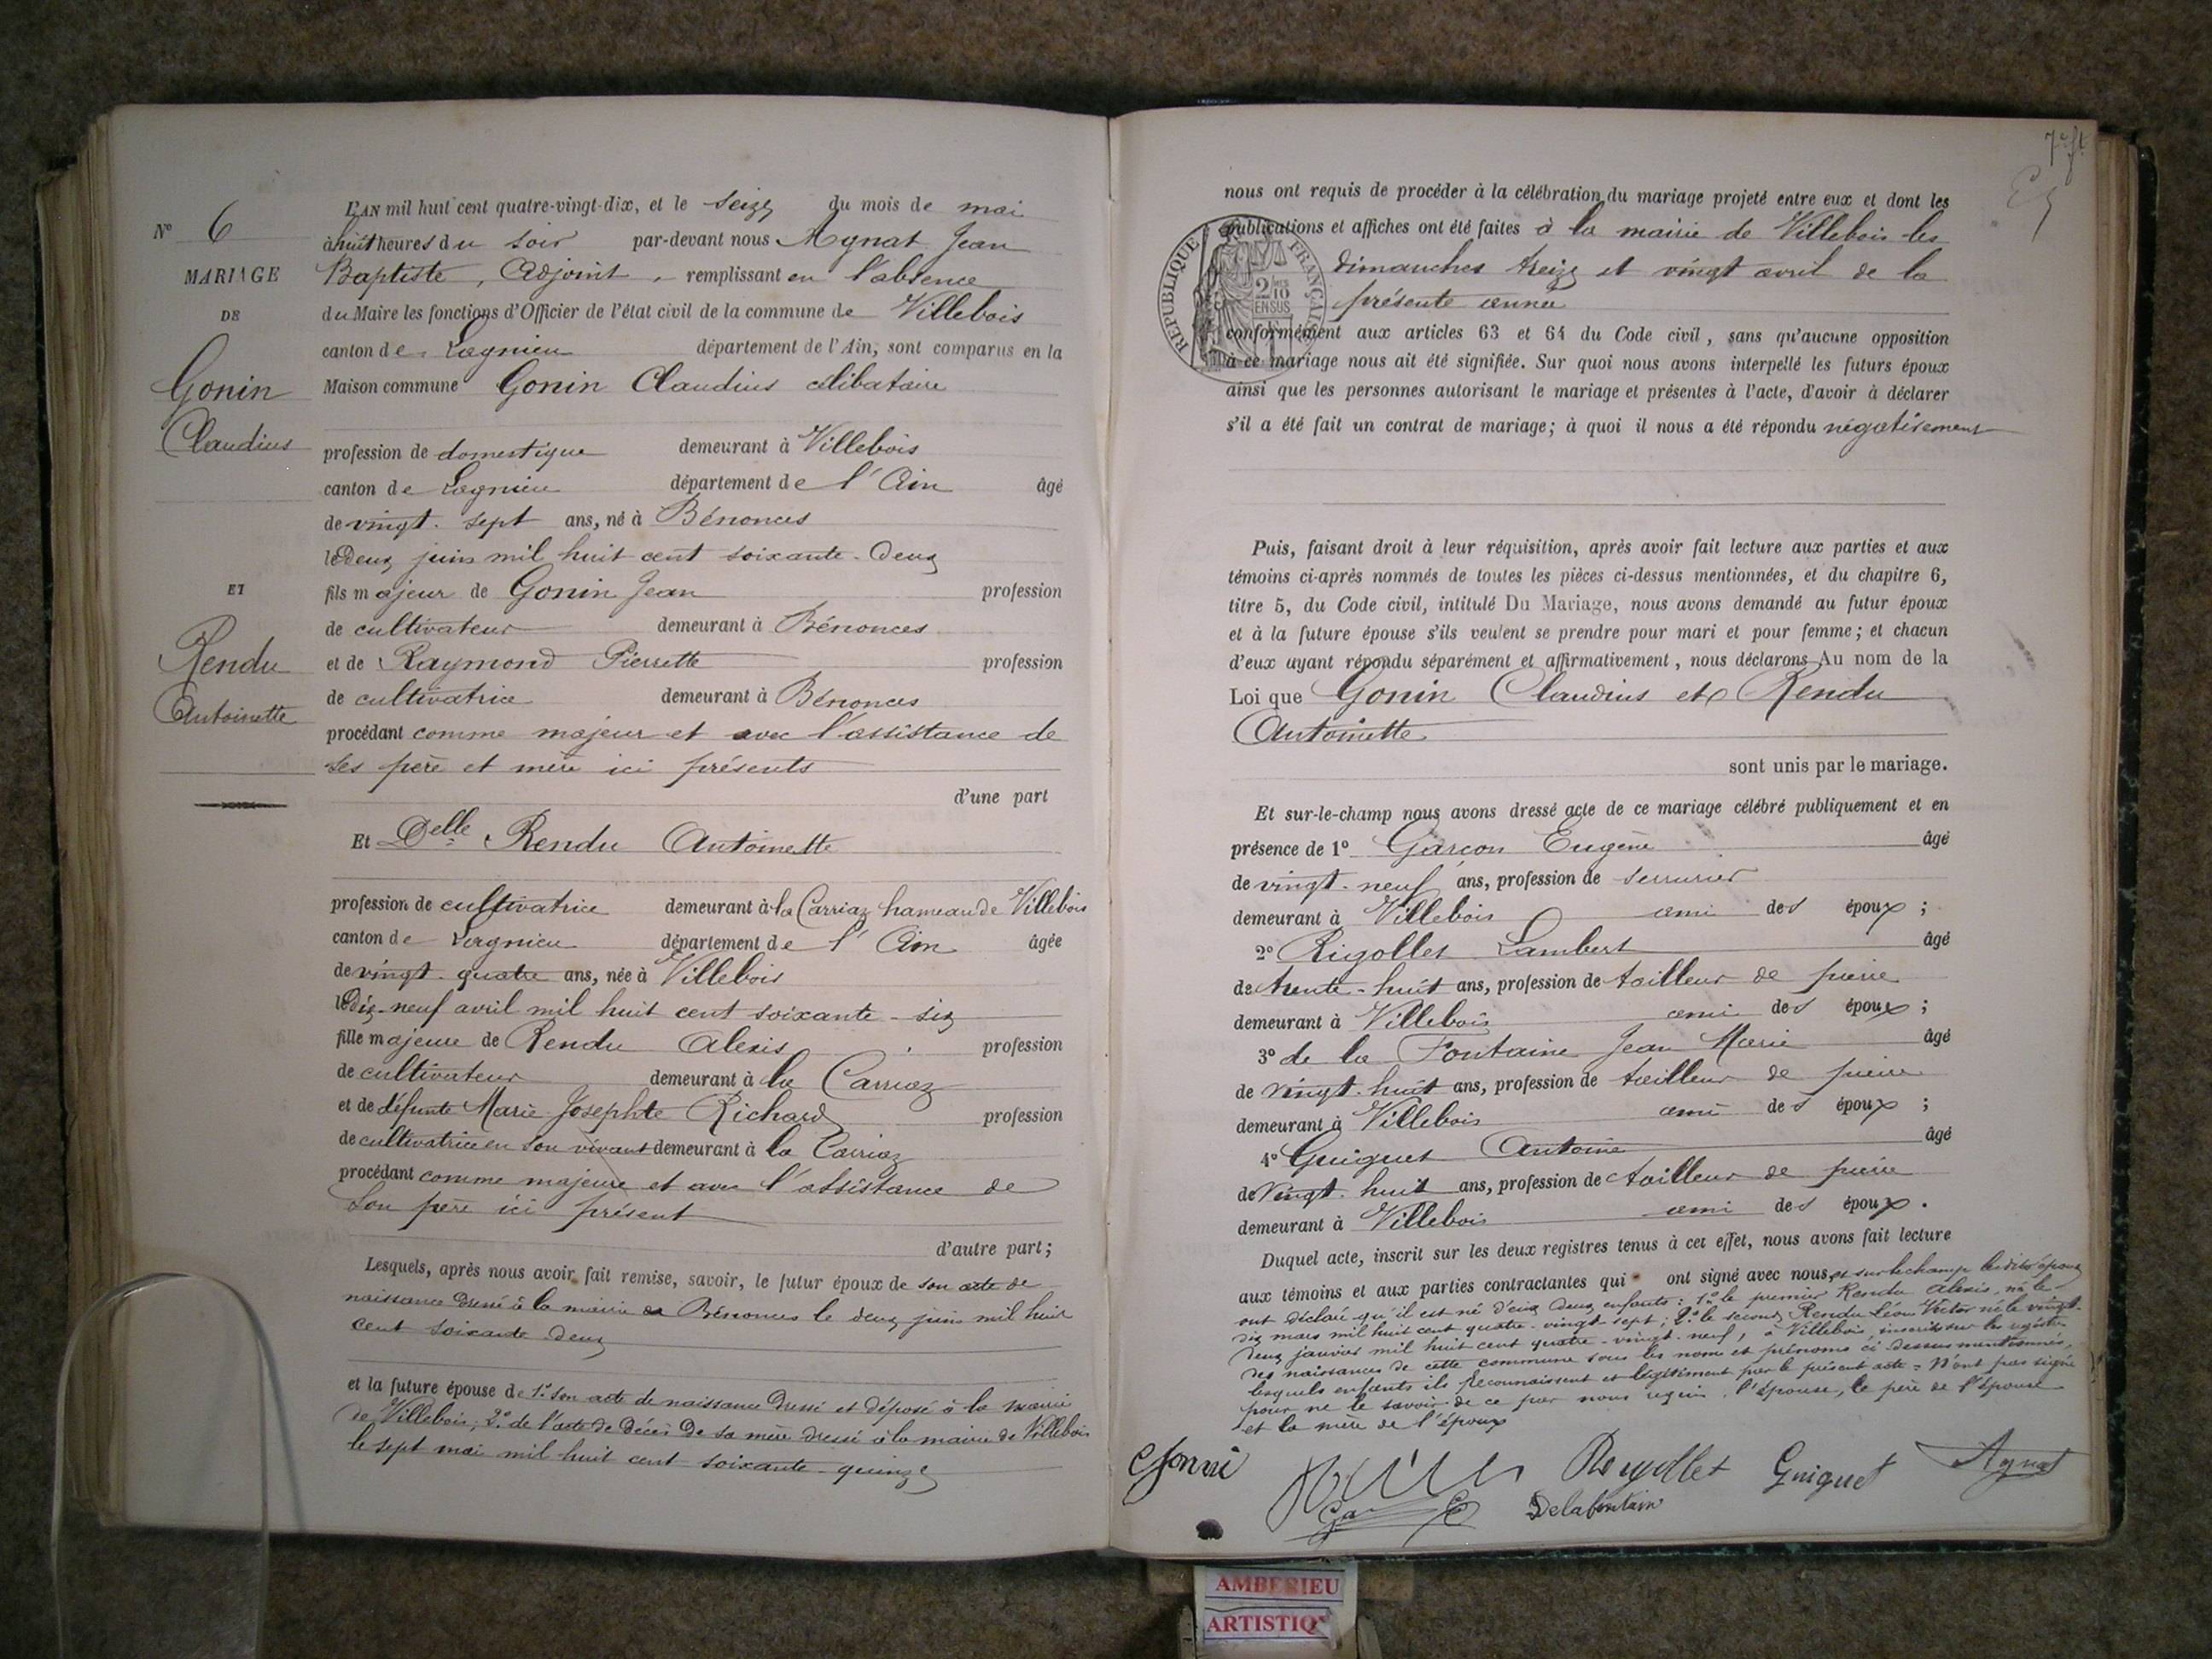 N° 6
MARIAGE
DE
Gonin
Claudius
ET
Rendu
Antoinette
L'AN mil huit cent quatre-vingt-dix, et le seize du mois de mai
à huit heures du soir par-devant nous Agnat Jean
Baptiste, Adjoint, remplissant en l'absence
du Maire les fonctions d'Officier de l'état civil de la commune de Villebois
canton de Lagnieu département de l'Ain, sont comparus en la
Maison commune Gonin Claudius célibataire
profession de domestique demeurant à Villebois
canton de Lagnieu département de l'Ain âgé
de vingt-sept ans, né à Bénonces
le Deux juin mil huit cent soixante-deux
fils majeur de Gonin Jean profession
de cultivateur demeurant à Bénonces
et de Raymond Pierrette profession
de cultivatrice demeurant à Bénonces
procédant comme majeur et avec l'assistance de
ses père et mère ici présents
d'une part
Et Delle Rendu Antoinette
profession de cultivatrice demeurant à la Carriaz hameau de Villebois
canton de Lagnieu département de l'Ain âgée
de vingt-quatre ans, née à Villebois
le Dix-neuf avril mil huit cent soixante-six
fille majeure de Rendu Alexis profession
de cultivateur demeurant à la Carriaz
et de défunte Marie Josephte Richard profession
de cultivatrice en son vivant demeurant à la Carriaz
procédant comme majeure et avec l'assistance de
son père ici présent
d'autre part;
Lesquels, après nous avoir fait remise, savoir, le futur époux de son acte de
naissance dressé à la mairie de Bénonces le deux juin mil huit
cent soixante deux
et la future épouse de 1° son acte de naissance dressé et déposé à la mairie
de Villebois, 2° de l'acte de décès de sa mère dressé à la mairie de Villebois
le sept mai mil huit cent soixante-quinze
7e ft
nous ont requis de procéder à la célébration du mariage projeté entre eux et dont les
publications et affiches ont été faites à la mairie de Villebois les
dimanches treize et vingt avril de la
présente année
RÉPUBLIQUE FRANÇAISE
2/10 EN SUS
conformément aux articles 63 et 64 du Code civil, sans qu'aucune opposition
à ce mariage nous ait été signifiée. Sur quoi nous avons interpellé les futurs époux
ainsi que les personnes autorisant le mariage et présentes à l'acte, d'avoir à déclarer
s'il a été fait un contrat de mariage; à quoi il nous a été répondu négativement
Puis, faisant droit à leur réquisition, après avoir fait lecture aux parties et aux
témoins ci-après nommés de toutes les pièces ci-dessus mentionnées, et du chapitre 6,
titre 5, du Code civil, intitulé Du Mariage, nous avons demandé au futur époux
et à la future épouse s'ils veulent se prendre pour mari et pour femme; et chacun
d'eux ayant répondu séparément et affirmativement, nous déclarons Au nom de la
Loi que Gonin Claudius et Rendu
Antoinette
sont unis par le mariage.
Et sur-le-champ nous avons dressé acte de ce mariage célébré publiquement et en
présence de 1° Garçon Eugène âgé
de vingt-neuf ans, profession de serrurier
demeurant à Villebois ami des époux;
2° Rigollet Lambert âgé
de trente-huit ans, profession de tailleur de pierre
demeurant à Villebois ami des époux;
3° de la Fontaine Jean Marie âgé
de vingt-huit ans, profession de tailleur de pierre
demeurant à Villebois ami des époux;
4° Guiguet Antoine âgé
de vingt-huit ans, profession de tailleur de pierre
demeurant à Villebois ami des époux.
Duquel acte, inscrit sur les deux registres tenus à cet effet, nous avons fait lecture
aux témoins et aux parties contractantes qui ont signé avec nous, et sur le champ lesdits époux
ont déclaré qu'il est né d'eux deux enfants: 1° le premier Rendu Alexis, né le
dix mars mil huit cent quatre-vingt-sept; 2° le second Rendu Léon Victor né le vingt-
deux janvier mil huit cent quatre-vingt-neuf, à Villebois, inscrits sur les registres
des naissances de cette commune sous les noms et prénoms ci-dessus mentionnés,
lesquels enfants ils reconnaissent et légitiment par le présent acte = N'ont pas signé
pour ne le savoir de ce par nous requis, l'épouse, le père de l'épouse
et la mère de l'époux
Rigollet Guiguet Agnat
Delafontaine
AMBERIEU
ARTISTIQ